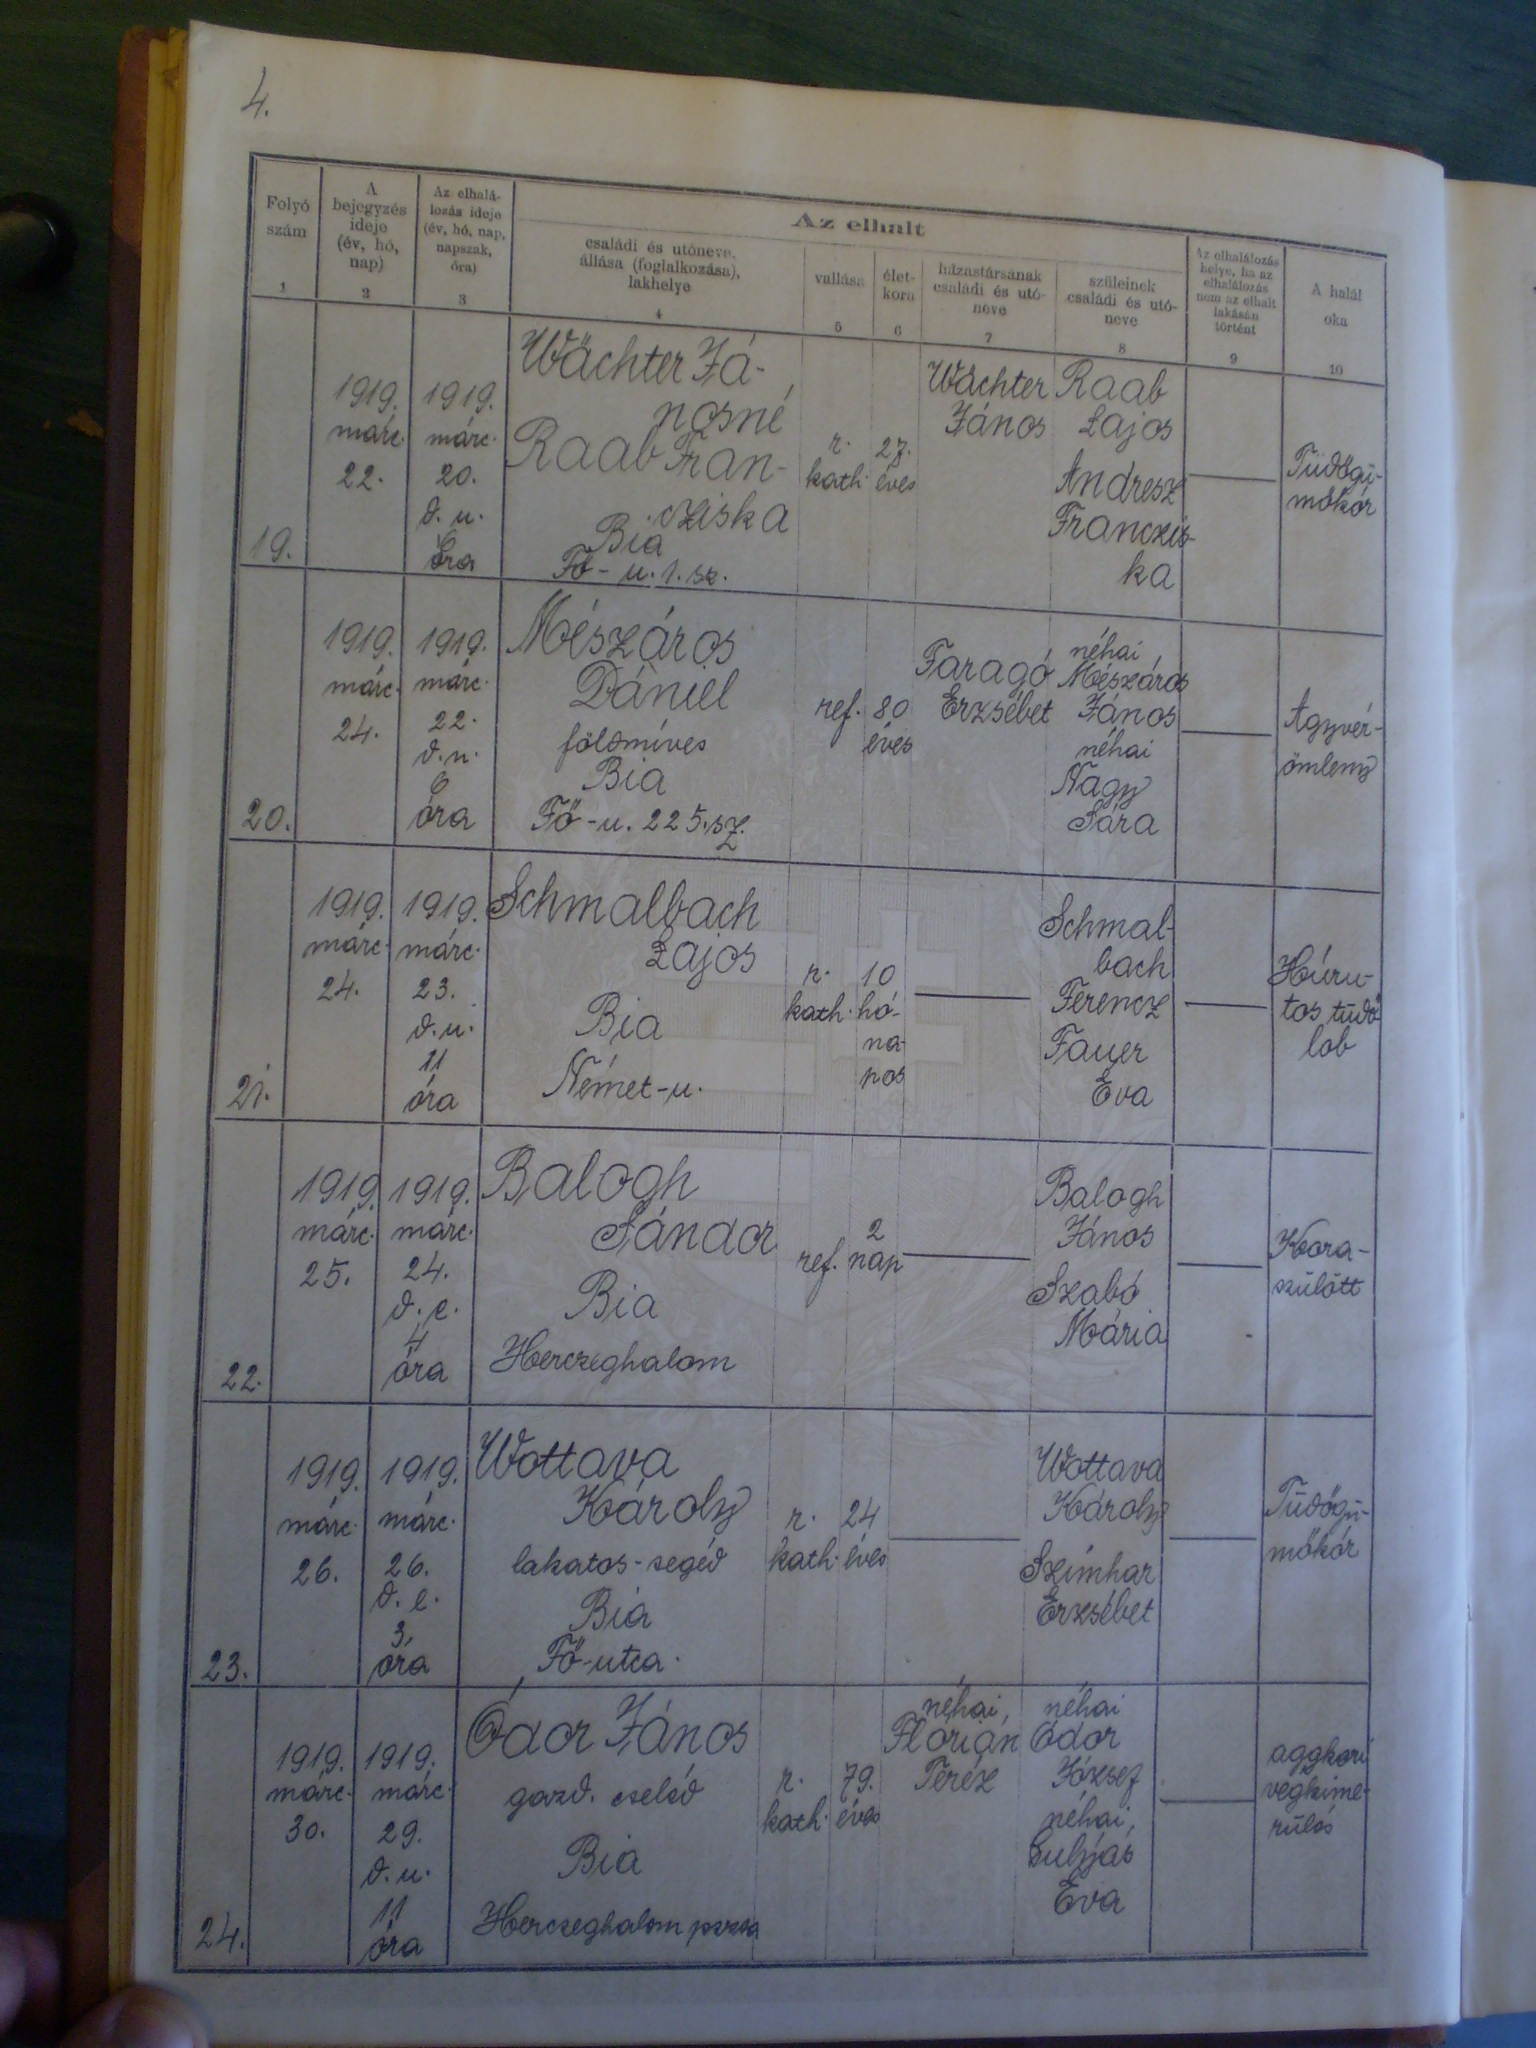 4.
Folyó
szám
1
A
bejegyzés
ideje
(év, hó,
nap)
2
Az elhalá-
lozás ideje
(év, hó, nap,
napszak,
óra)
3
Az elhalt
családi és utóneve,
állása (foglalkozása),
lakhelye
4
vallása
5
élet-
kora
6
házastársának
családi és utó-
neve
7
szüleinek
családi és utó-
neve
8
Az elhalálozás
helye, ha az
elhalálozás
nem az elhalt
lakásán
történt
9
A halál
oka
10
19.
1919.
márc.
22.
1919.
márc.
20.
d. u.
6
óra
Wächter Já-
nosné
Raab Fran-
cziska
Bia
Fő-u. 1. sz.
r.
kath.
27.
éves
Wächter
János
Raab
Lajos
Andresz
Franczis-
ka
Tüdőgü-
mőkór
20.
1919.
márc.
24.
1919.
márc.
22.
d. u.
6
óra
Mészáros
Dániel
földmíves
Bia
Fő-u. 225. sz.
ref.
80
éves
Faragó
Erzsébet
néhai
Mészáros
János
néhai
Nagy
Sára
Agyvér-
ömleny
21.
1919.
márc.
24.
1919.
márc.
23.
d. u.
11
óra
Schmalbach
Lajos
Bia
Német-u.
r.
kath.
10
hó-
na-
pos
Schmal-
bach
Ferencz
Fauer
Éva
Húru-
tos tüdő
lob
22.
1919.
márc.
25.
1919.
márc.
24.
d. e.
4
óra
Balogh
Sándor
Bia
Herczeghalom
ref.
2
nap
Balogh
János
Szabó
Mária
Kora-
szülött
23.
1919.
márc.
26.
1919.
márc.
26.
d. e.
3
óra
Wottava
Károly
lakatos-segéd
Bia
Fő-utca.
r.
kath.
24
éves
Wottava
Károly
Szimhar
Erzsébet
Tüdőgü-
mőkór
24.
1919.
márc.
30.
1919.
márc.
29.
d. u.
11
óra
Ódor János
gazd. cseléd
Bia
Herczeghalom puszta
r.
kath.
79.
éves
néhai
Flórián
Teréz
néhai
Ódor
József
néhai
Gulyás
Éva
aggkori
végkime-
rülés